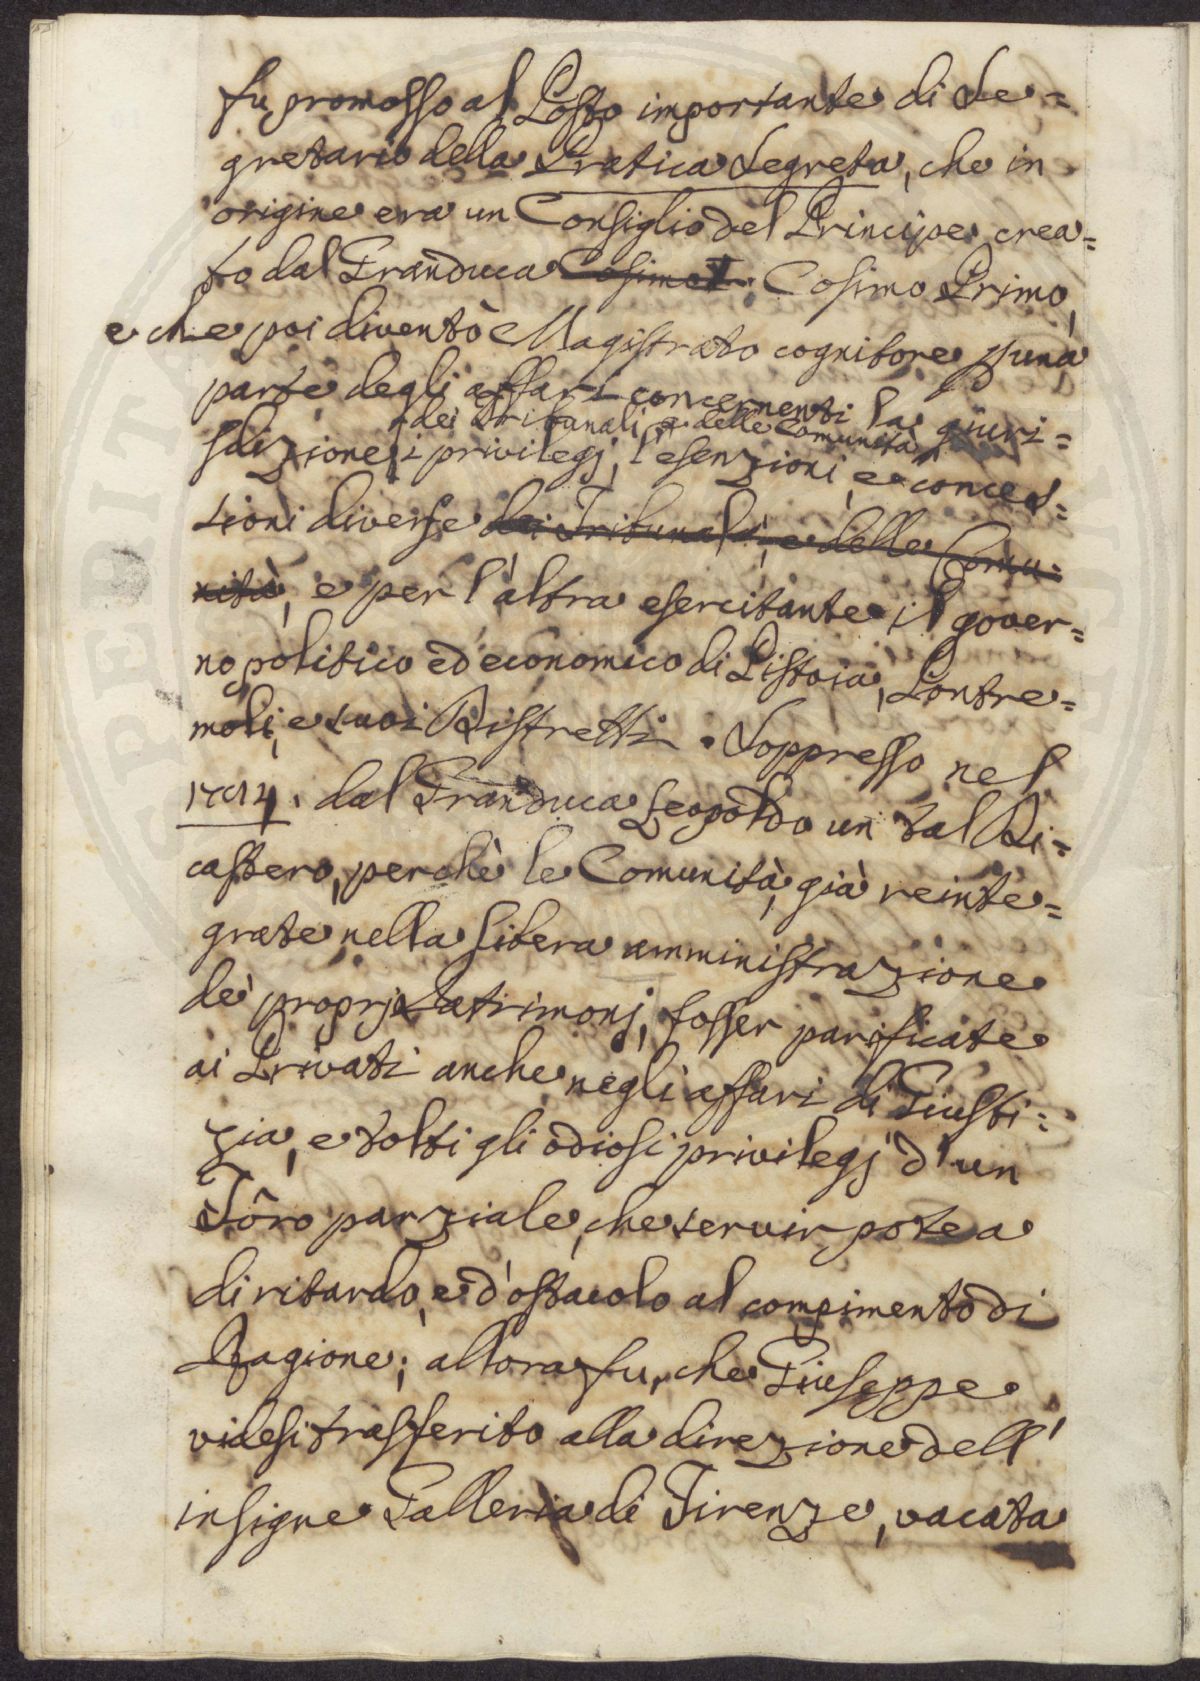 fu promosso al Posto importante di Se=
gretario della Pratica Segreta, che in
origine era un Consiglio del Principe crea=
to dal Granduca Cosimo I. Cosimo Primo,
e che poi diventò Magistrato cognitore p una
parte degli affari concernenti la giuri=
dei Tribunali, e delle Comunità
sdizione, i privilegj, l'esenzioni, e conces=
sioni diverse dei Tribunali, e delle Comu=
nità, e per l'altra esercitante il gover=
no politico ed economico di Pistoia, Pontre=
moli, e suoi Distretti. Soppresso nel
dal Granduca Leopoldo un tal Di=
castero, perchè le Comunità, già reinte=
grate nella libera amministrazione
dè proprj Patrimonj, fosser parificate
ai Privati anche negli affari di Giusti=
zia, e tolti gli odiosi privilegj d'un
Fôro parziale, che servir potea
di ritardo, e d'ostacolo al compimento di
Ragione; allora fu, che Giuseppe
videsi trasferito alla direzione dell'
insigne Galleria di Firenze, vacata